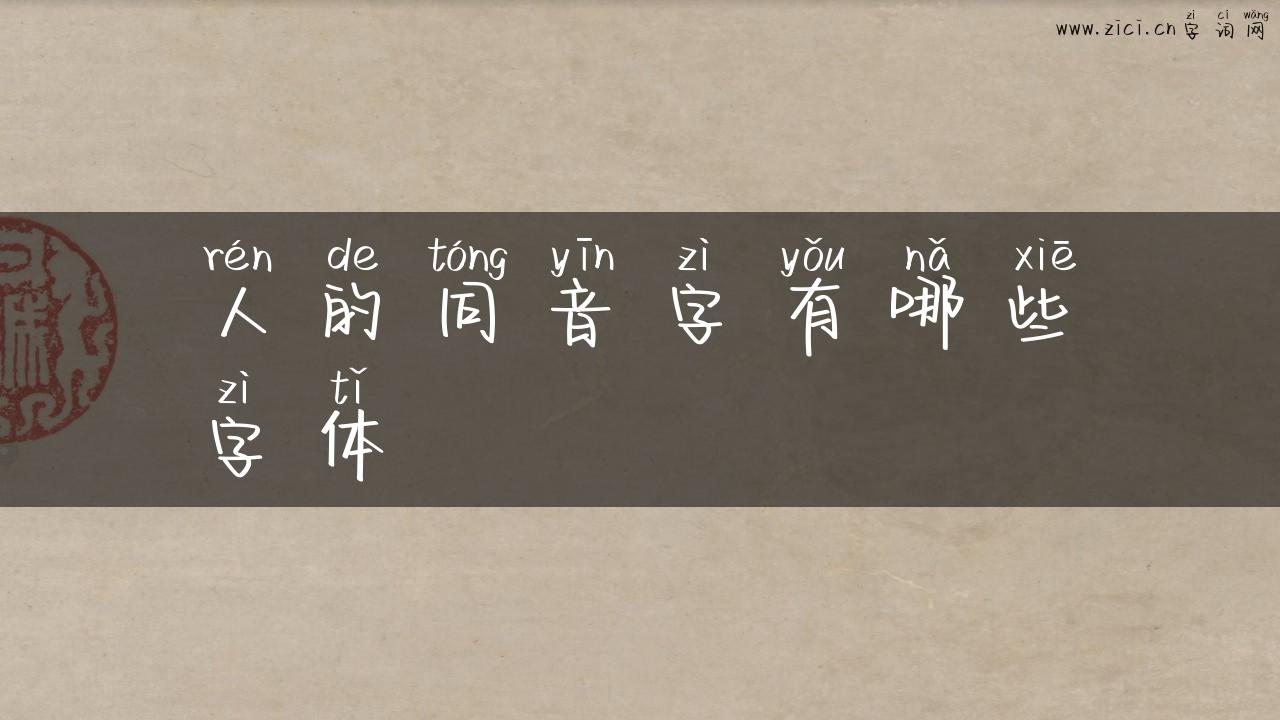 zì cí wǎng
www.zici.cn 字词网
rén de tóng yīn zì yǒu nǎ xiē
人的同音字有哪些
zì tǐ
字体